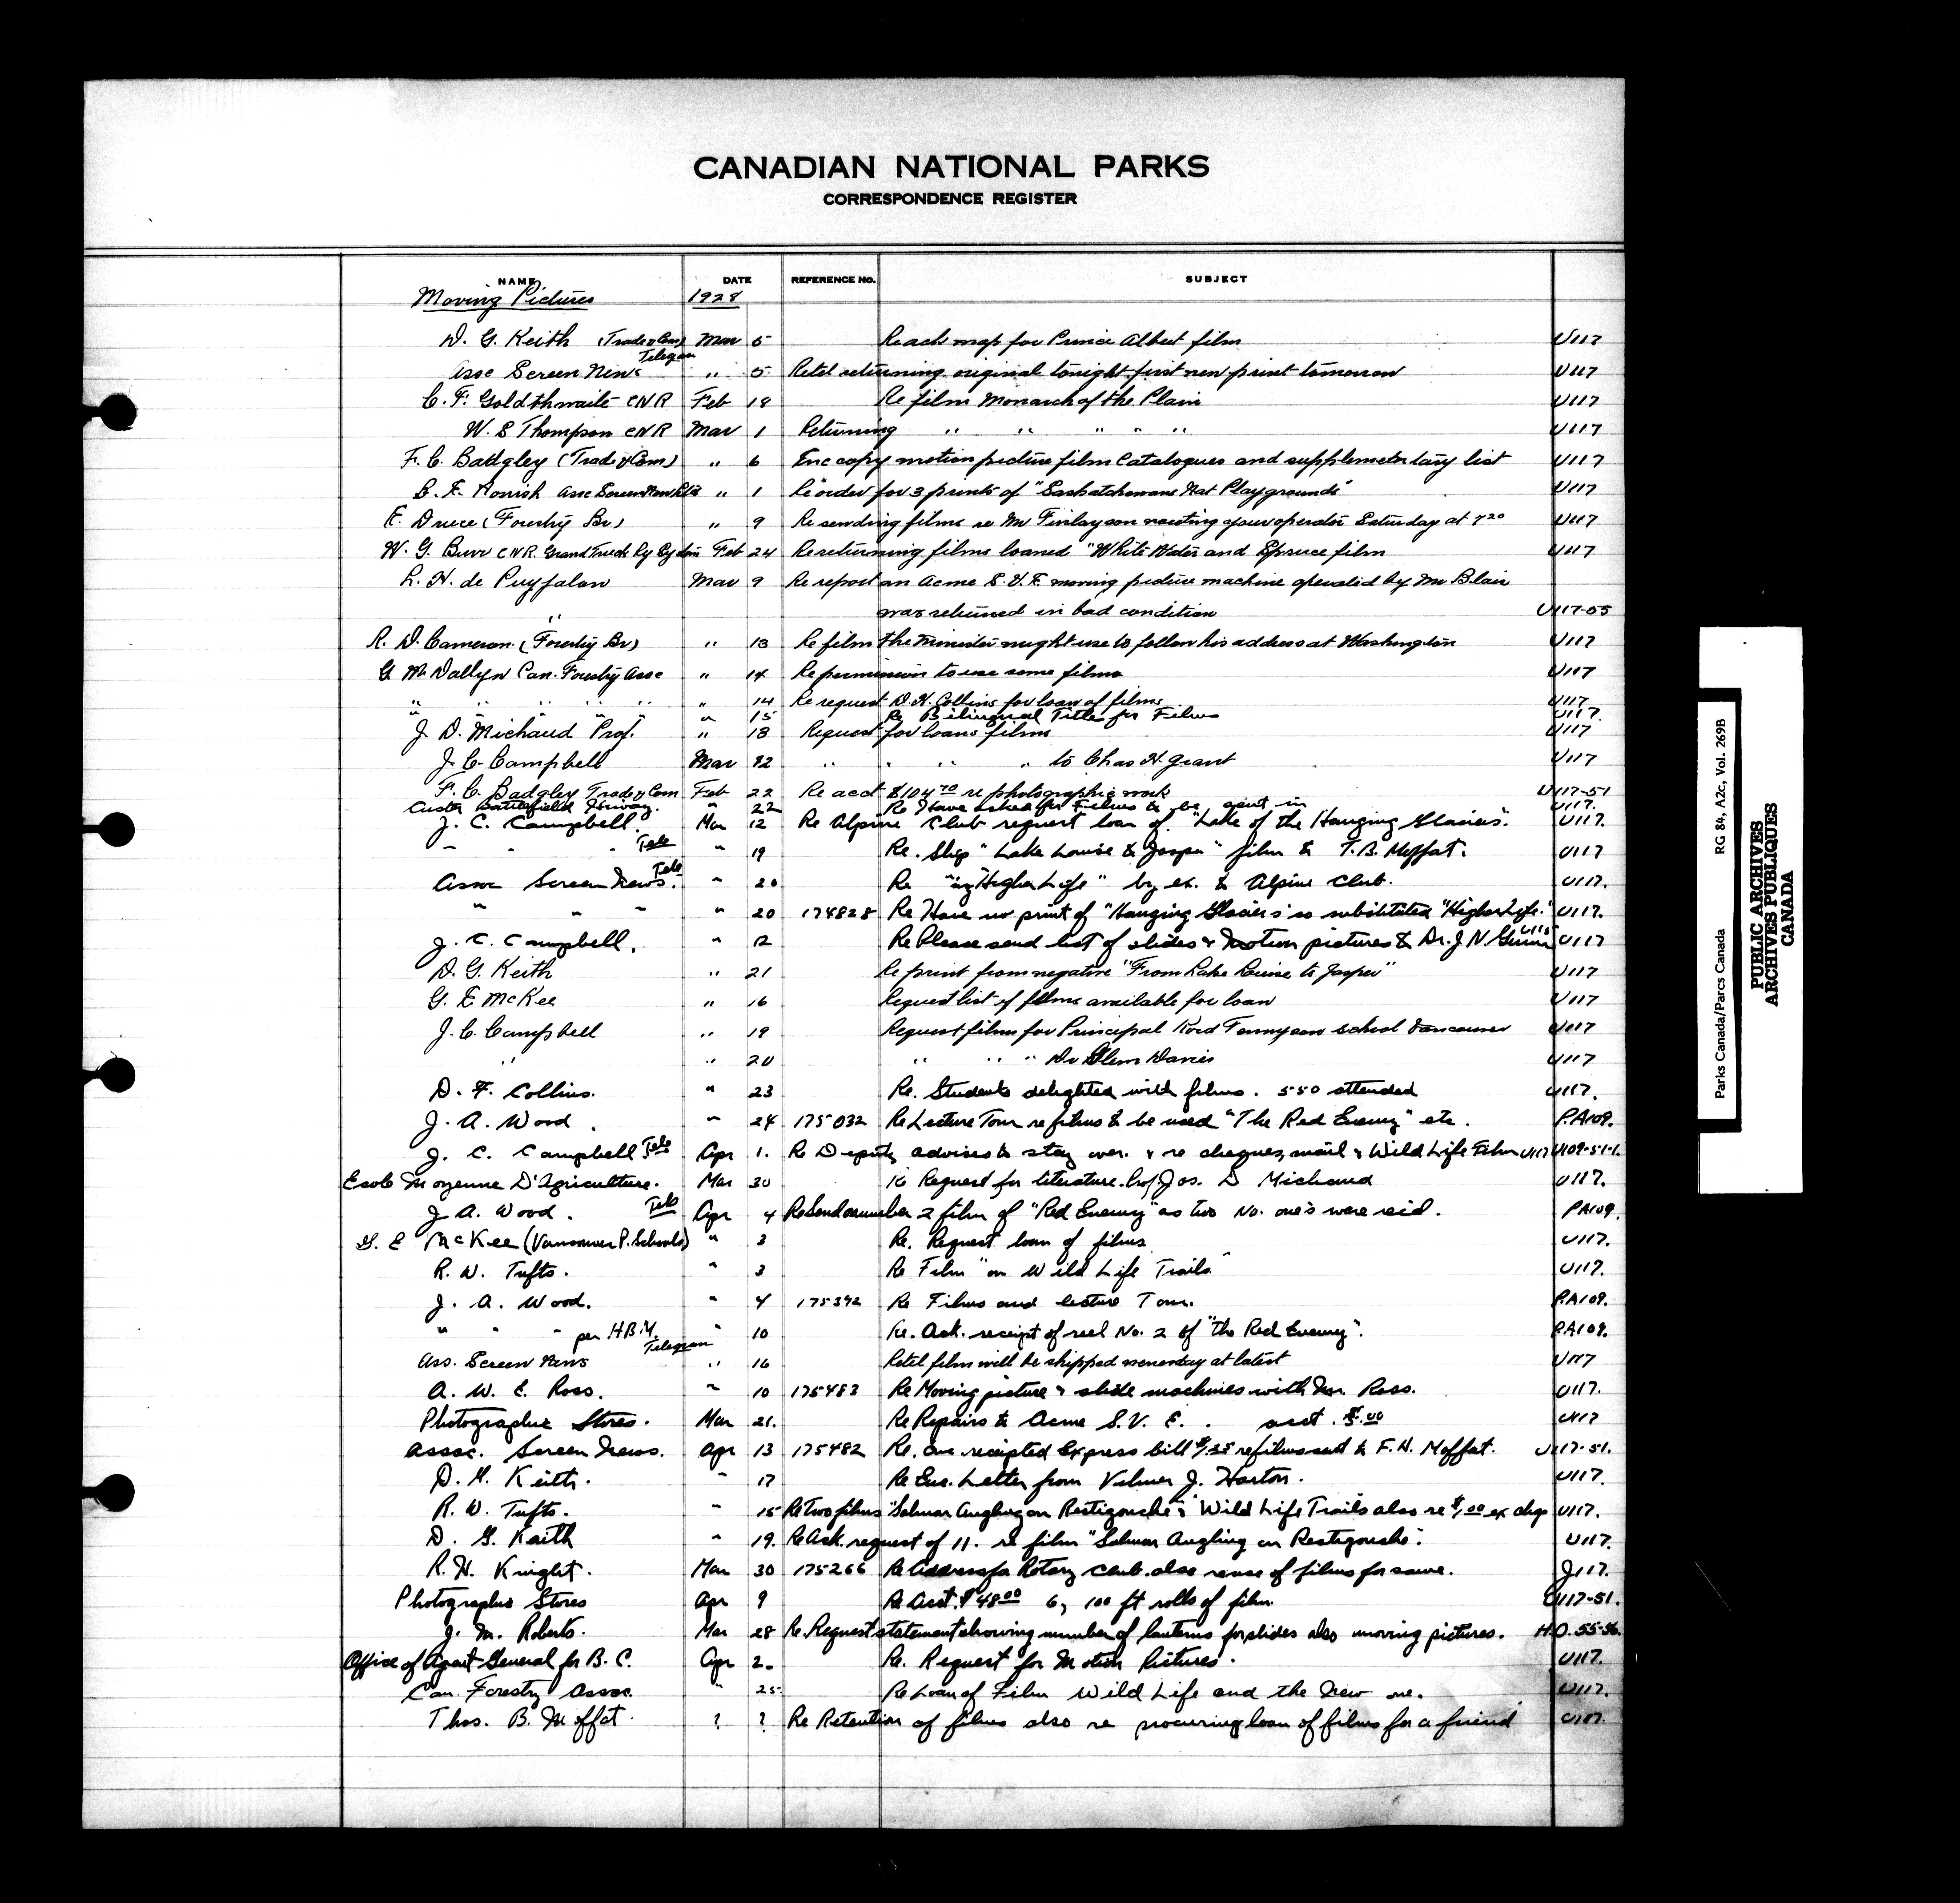 CANADIAN NATIONAL PARKS
CORRESPONDENCE REGISTER
NAME DATE REFERENCE NO. SUBJECT
Moving Pictures 1928
D. G. Keith (Trade & Com) Mar 5 Re ack map for Prince Albert film U117
Telegram
Asse Screen News " 5 Retel returning original tonight first new print tomorrow U117
C. F. Goldthwaite CNR Feb 18 Re film Monarch of the Plain U117
W. S Thompson CNR Mar 1 Returning " " " " " U117
F. C. Badgley (Trade & Com) " 6 Enc copy motion picture film Catalogues and supplementary list U117
" 1 Re order for 3 prints of "Saskatchewans Nat Playgrounds" U117
E. Druce (Forestry Br) " 9 Re sending films re Mr Finlayson meeting your operator Saturday at 7 20 U117
W. G. Burr CNR. Grand Trunk Ry System Feb 24 Re returning films loaned "White Water and Spruce film U117
L. H. de Puyjalon Mar 9 Re report on Acme S.V.E. moving picture machine operated by Mr Blair
" was returned in bad condition U117-55
R. D. Cameron (Forestry Br) " 13 Re film the Minister might use to follow his address at Washington U117
G M Dallyn Can. Forestry Asse " 14 Re permission to use some films U117
" " " " " " " 14 Re request D. H. Collins for loan of films U117
" " " " " 15 Re Bilingual Titles for Films U117.
J. D. Michaud Prof. " 18 Request for loans films U117
J. C. Campbell Mar 12 " " " " to Chas H. Grant U117
F. C. Badgley Trade & Com Feb 22 Re acct $104 70 re photographic work U117-51
Custer Battlefield Hiway. " 22 Re Have asked for Films to be sent in U117.
J. C. Campbell. Mar 12 Re Alpine Club request loan of "Lake of the Hanging Glaciers". U117.
" " " Tele " 19 Re. Ship "Lake Louise to Jasper" film to T. B. Moffat. U117
Tele
Assoc Screen News. " 20 Re "in Higher Life" by ex. to Alpine Club. U117.
" " " " 20 174828 Re Have no print of "Hanging Glaciers" so substituted "Higher Life." U117.
J. C. Campbell. " 12 Re Please send list of slides & motion pictures to Dr. J. N. U115 U117
D. G. Keith " 21 Re print from negative "From Lake Louise to Jasper" U117
G. E McKee " 16 Request list of films available for loan U117
J. C. Campbell " 19 Request films for Principal Lord Tennyson school Vancouver U117
" " 20 " " " Dr Glenn Davies U117
D. F. Collins. " 23 Re. Students delighted with films. 550 attended U117.
J. A. Wood. " 24 175032 Re Lecture Tour re films to be used "The Red Enemy" etc. P.A109.
J. C. Campbell Tele Apr 1. Re Deputy advises to stay over. & re cheques, mail & Wild Life Film U117 U109-51-1.
Ecole Moyenne D'Agriculture. Mar 30 Re Request for literature. Prof Jos. D Michaud U117.
J A. Wood. Tele Apr 4 Re Send number 2 film of "Red Enemy" as two No. one's were recd. PA109.
G. E McKee (Vancouver P. Schools) " 3 Re. Request loan of films U117.
R. W. Tufts. " 3 Re Film "on Wild Life Trails" U117.
J. A. Wood. " 4 175392 Re Films and lecture Tour. P.A109.
" " " per H.B.M. " 10 Re. Ack. receipt of reel No. 2 of "the Red Enemy". P.A109.
Telegram
Ass. Screen News " 16 Retel film will be shipped at latest U117
A. W. E. Ross. " 10 175483 Re Moving picture & slide machines with Mr. Ross. U117.
Photographic Stores. Mar 21. Re Repairs to Acme S.V. E. . acct. $5.00 U117
Assoc. Screen News. Apr 13 175482 Re. Enc receipted Express bill $1.35 re films sent to F. N. Moffat. U117-51.
D. G. Keith. " 17 Re Enc. Letter from Vilmer J. Harton. U117.
R. W. Tufts. " 15 Re Two films "Salmon Angling on Restigouche" & Wild Life Trails also re $1.00 ex chge U117.
D. G. Keith " 19. Re Ack. request of 11. re film "Salmon Angling on Restigouche". U117.
R. H. Knight. Mar 30 175266 Re Address for Rotary club also re use of films for same. J117.
Photographic Stores Apr 9 Re Acct. $48.00 6, 100 ft rolls of film U117-51.
J. M. Roberts. Mar 28 Re. Request statement showing number of lanterns for slides also moving pictures. H.O. 55-36.
Office of Agent General for B. C. Apr 2. Re. Request for Motion Pictures. U117.
Can. Forestry Assoc. " 25 Re Loan of Film Wild Life and the New one. U117.
Thos. B. Moffat. ? ? Re Retention of films also re procuring loan of films for a friend U117.
Parks Canada/Parcs Canada RG 84, A2c, Vol. 269B
PUBLIC ARCHIVES
ARCHIVES PUBLIQUES
CANADA